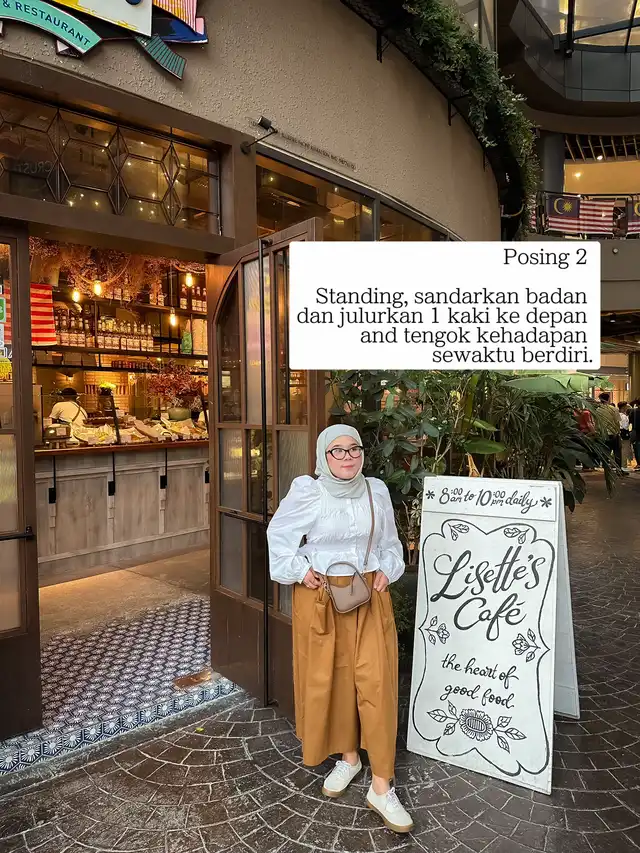 & RESTAURANT
Posing 2
Standing, sandarkan badan
dan julurkan 1 kaki ke depan
and tengok kehadapan
sewaktu berdiri.
* 8:00 am to 10:00 pm daily *
Lisette's
Café
the heart of
good food.